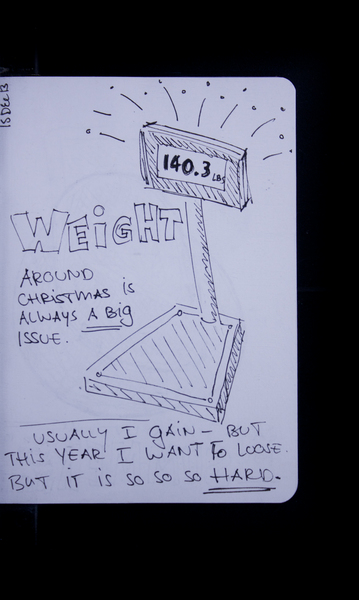 15 DEC 13
140.3 LBS
WEIGHT
AROUND
CHRISTMAS is
ALWAYS A Big
ISSUE.
USUALLY I gAiN - BUT
THIS YEAR I WANT To LOOSE.
BUT IT IS SO SO SO HARD.